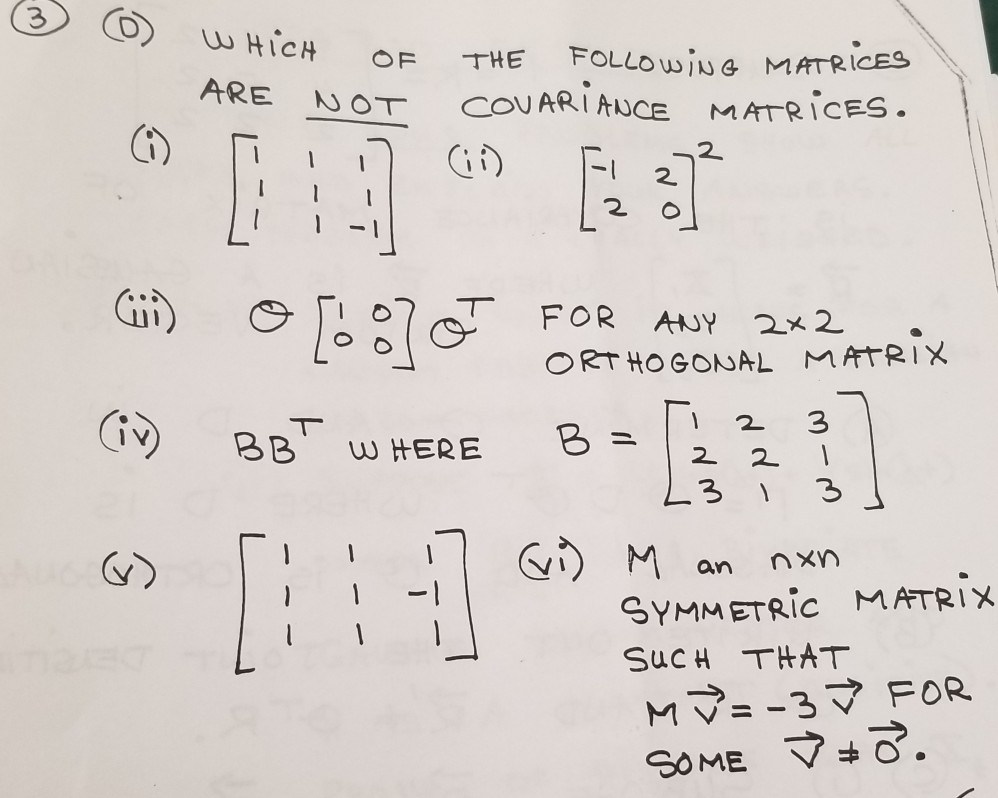 ③ (D) WHICH OF THE FOLLOWING MATRICES
ARE NOT COVARIANCE MATRICES.
(i) [1 1 1; 1 1 1; 1 1 -1] (ii) [-1 2; 2 0]²
(iii) O [1 0; 0 0] Oᵀ FOR ANY 2x2
ORTHOGONAL MATRIX
(iv) BBᵀ WHERE B = [1 2 3; 2 2 1; 3 1 3]
(v) [1 1 1; 1 1 -1; 1 1 1] (vi) M an nxn
SYMMETRIC MATRIX
SUCH THAT
M v⃗ = -3 v⃗ FOR
SOME v⃗ ≠ 0⃗.